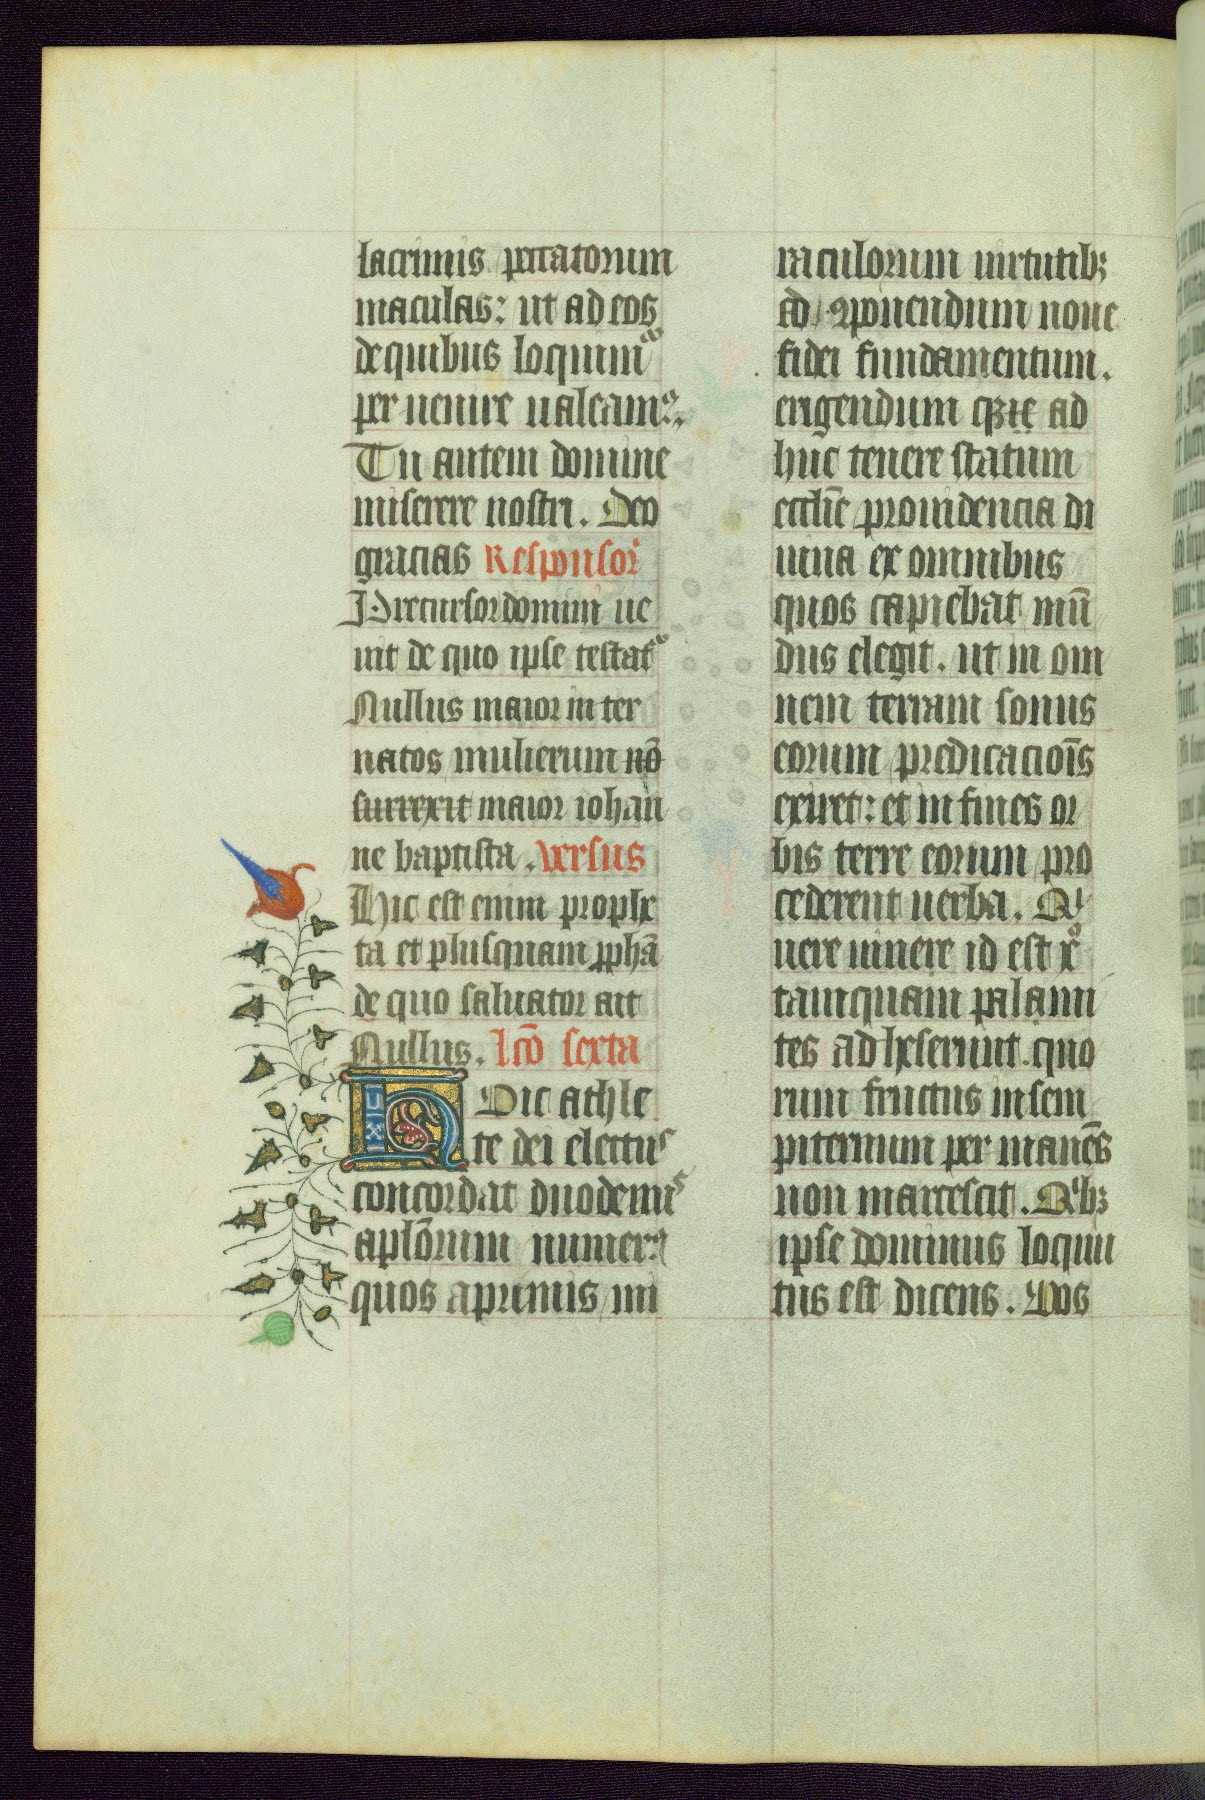 lacrimis peccatorum
maculas: ut ad eos
de quibus loquim᷑
per uenire ualeamꝰ.
Tu autem domine
miserere nostri. Deo
gracias Responsor̄
Precursor domini ue
nit de quo ipse testat᷑
Nullus maior inter
natos mulierum nō
surrexit maior iohan
ne baptista. versus
Hic est enim prophe
ta et plusquam ꝓphā
de quo saluator ait
Nullus. lc̄o sexta
Huic athle
te dei electus
concordat duodenus
apl̄orum numerꝰ
quos a primis mi
raculorum uirtutibꝫ
ad ꝯponendum noue
fidei fundamentum.
erigendum ad
hunc tenere statum
eccl̄ie prouidencia di
uina ex omnibus
quos capiebat mū
dus elegit. ut in om
nem terram sonus
eorum predicacioīs
exiret: et in fines or
bis terre eorum pro
cederent uerba. Qͥ
uere uiuere id est xͦ
tamquam palami
tes adheserunt. quo
rum fructus in sem
piternum per manēs
non marcescit. Qͥbꝫ
ipse dominus loquu
tus est dicens. Vos